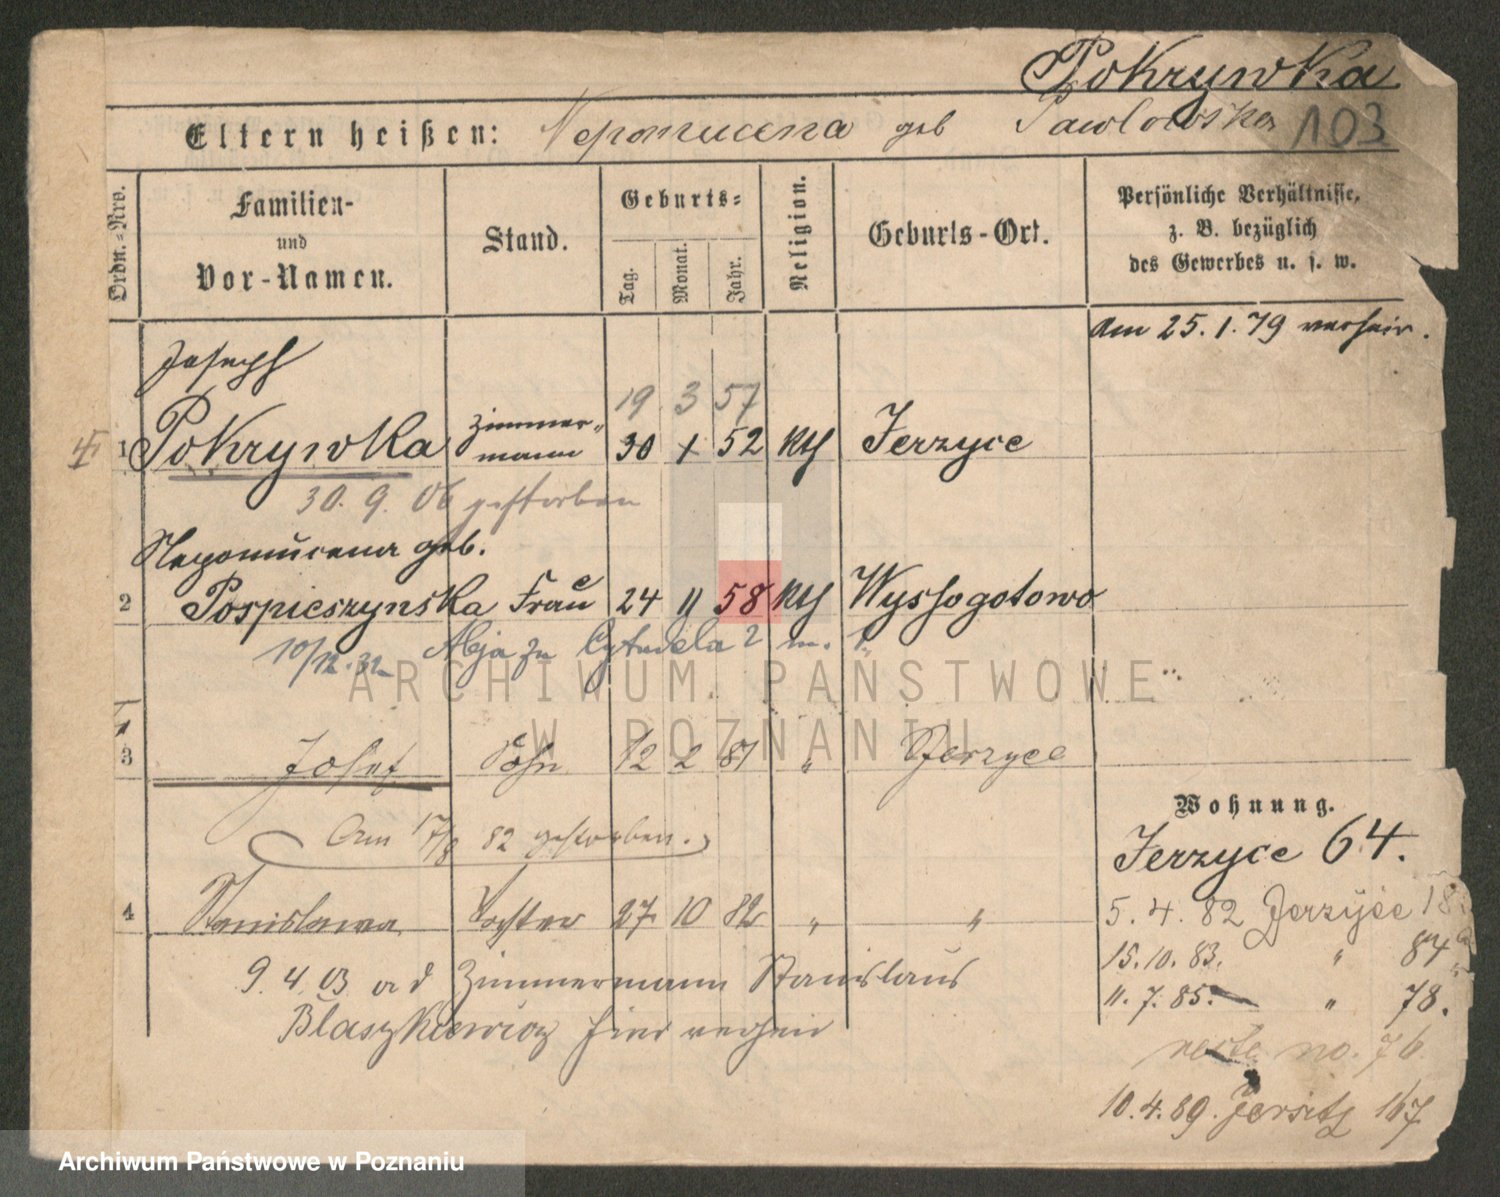 Pokrywka
Eltern heißen: Nepomucena geb Pawlowska 103
Ordn.=Nro.
Familien-
und
Vor-Namen.
Stand.
Geburts=
Tag.
Monat.
Jahr.
Religion.
Geburts-Ort.
Persönliche Verhältnisse,
z. B. bezüglich
des Gewerbes u. s. w.
Am 25. 1. 79 verheir.
Joseph
19 3 57
1 Pokrywka Zimmer-
mann 30 1 52 Kth Jerzyce
30. 9. 06 gestorben
Nepomucena geb.
2 Pospieszynska Frau 24 4 58 Kth Wyssogotowo
10/12. 32 Cytadela 2 m. 1.
3 Josef Sohn 12 2 81 " Jerzyce
Am 17/8 82 gestorben.
4 Stanislawa Tochter 27 10 82 " "
9. 4. 03 a d Zimmermann Stanislaus
Blaszkiewicz hier verheir
Wohnung.
Jerzyce 64.
5. 4. 82 Jerzyce
15. 10. 83. " 87
11. 7. 85. " 78.
no. 76
10. 4. 89. Jersitz 167
ARCHIWUM PAŃSTWOWE
W POZNANIU
Archiwum Państwowe w Poznaniu